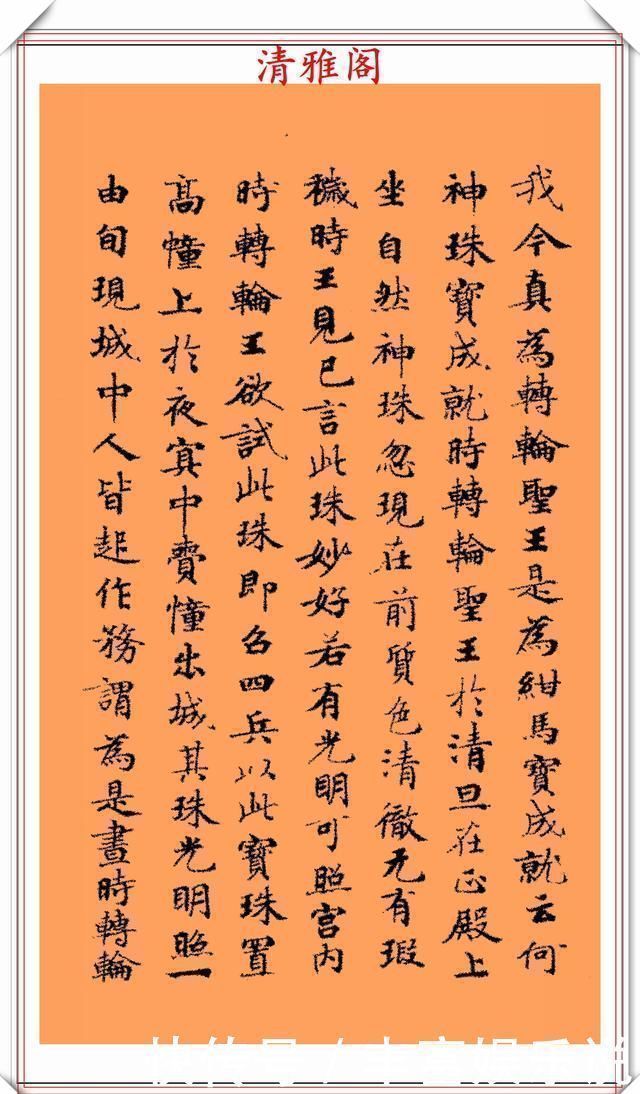 清雅阁
我今真為轉輪聖王是為紺馬寶成就云何
神珠寶成就時轉輪聖王於清旦在正殿上
坐自然神珠忽現在前質色清徹无有瑕
穢時王見已言此珠妙好若有光明可照宮内
時轉輪王欲試此珠即召四兵以此寶珠置
高幢上於夜㝠中賷幢出城其珠光明照一
由旬現城中人皆起作務謂為是晝時轉輪